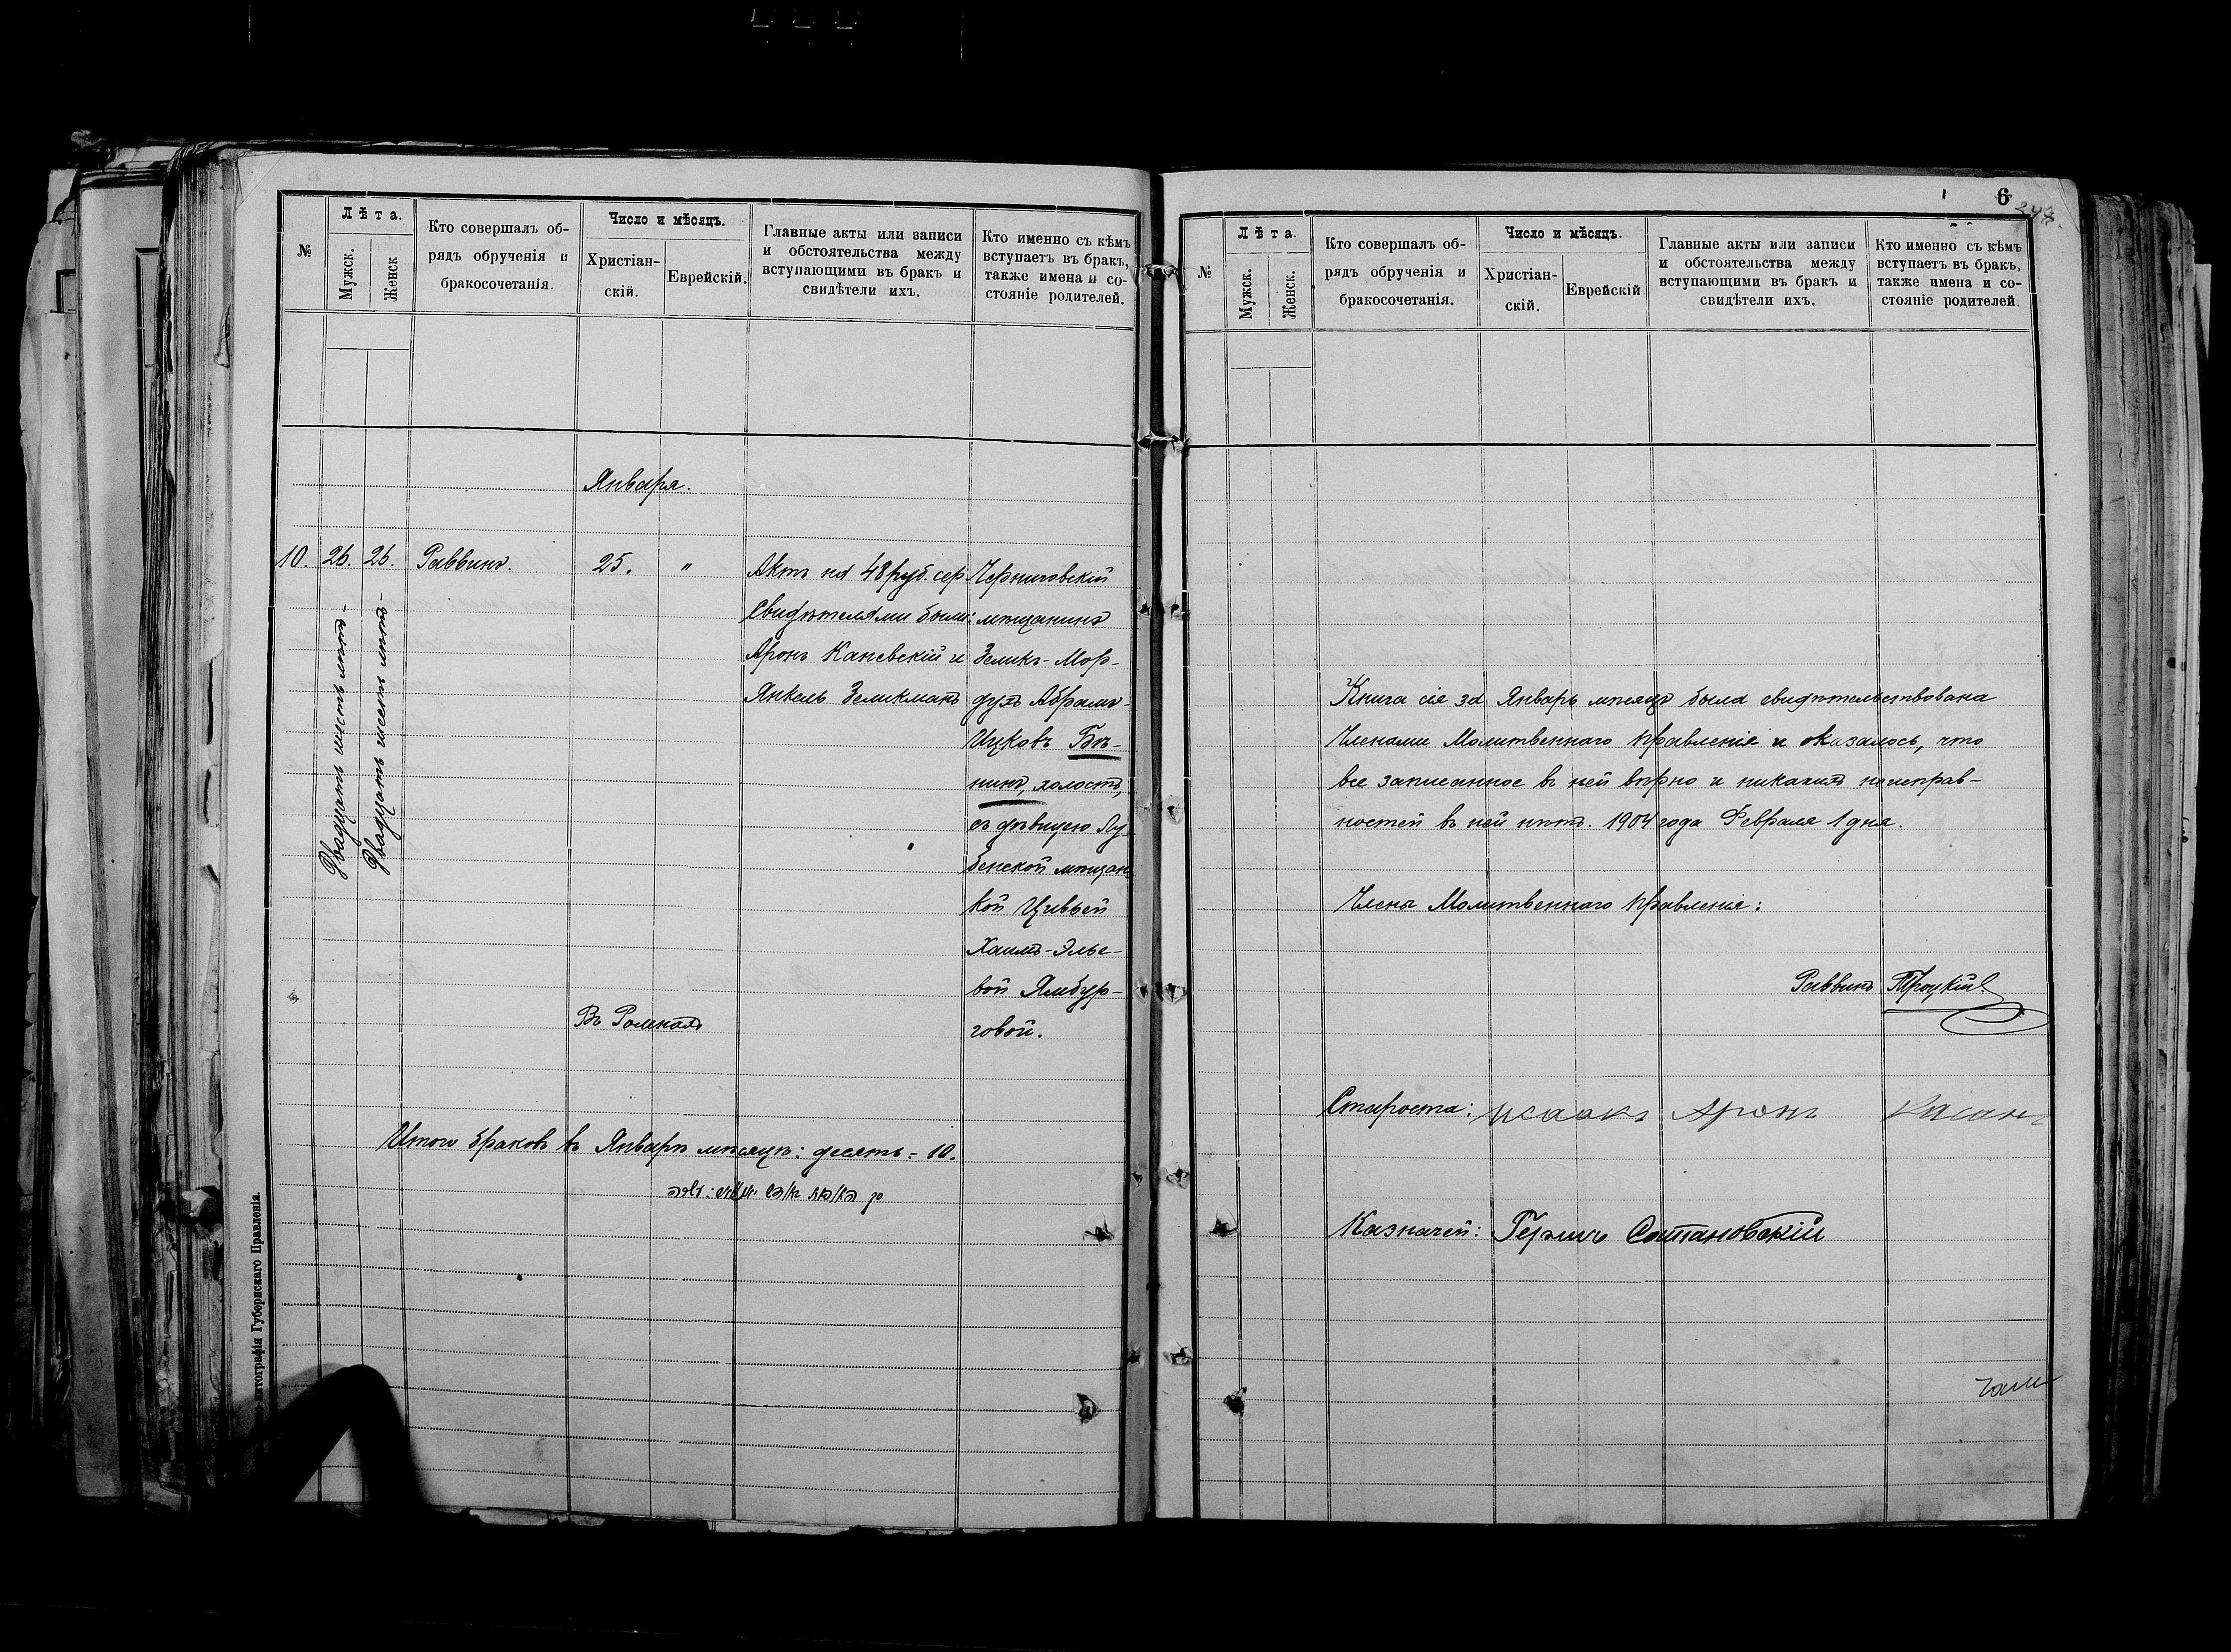 №
Лѣта.
Мужск.
Женск
Кто совершалъ об-
рядъ обрученія и
бракосочетанія.
Число и мѣсяцъ.
Христіан-
скій.
Еврейскій.
Главные акты или записи
и обстоятельства между
вступающими въ бракъ и
свидѣтели ихъ.
Кто именно съ кѣмъ
вступаетъ въ бракъ,
также имена и со-
стояніе родителей.
Января.
10.
26.
Двадцать шесть лѣтъ-
26.
Двадцать шесть лѣтъ-
Раввинъ.
25.
"
Актъ на 48 руб. сер.
Свидѣтелями были:
Аронъ Каневскій и
Янкель Зеликманъ
Черниговскій
мѣщанинъ
Зеликъ-Мор-
духъ Абрамъ-
Ицковъ Бѣ-
нинъ, холостъ,
съ дѣвицею Лу-
бенской мѣщан-
кой Цивьей
Хаимъ-Элье-
вой Ямбур-
говой.
Въ Роменахъ
Итого браковъ въ Январѣ мѣсяцѣ: десять = 10.
литографія Губернскаго Правленія.
6
№
Лѣта.
Мужск.
Женск.
Кто совершалъ об-
рядъ обрученія и
бракосочетанія.
Число и мѣсяцъ.
Христіан-
скій.
Еврейскій
Главные акты или записи
и обстоятельства между
вступающими въ бракъ и
свидѣтели ихъ.
Кто именно съ кѣмъ
вступаетъ въ бракъ,
также имена и со-
стояніе родителей.
Книга сія за Январь мѣсяцъ была свидѣтельствована
Членами Молитвеннаго Правленія и оказалось, что
все записанное въ ней вѣрно и никакихъ неисправ-
ностей въ ней нѣтъ. 1904 года Февраля 1 дня.
Члены Молитвеннаго Правленія:
Раввинъ Троцкій
Староста: Исаакъ Аронъ
Казначей: Гершъ Сатановскій